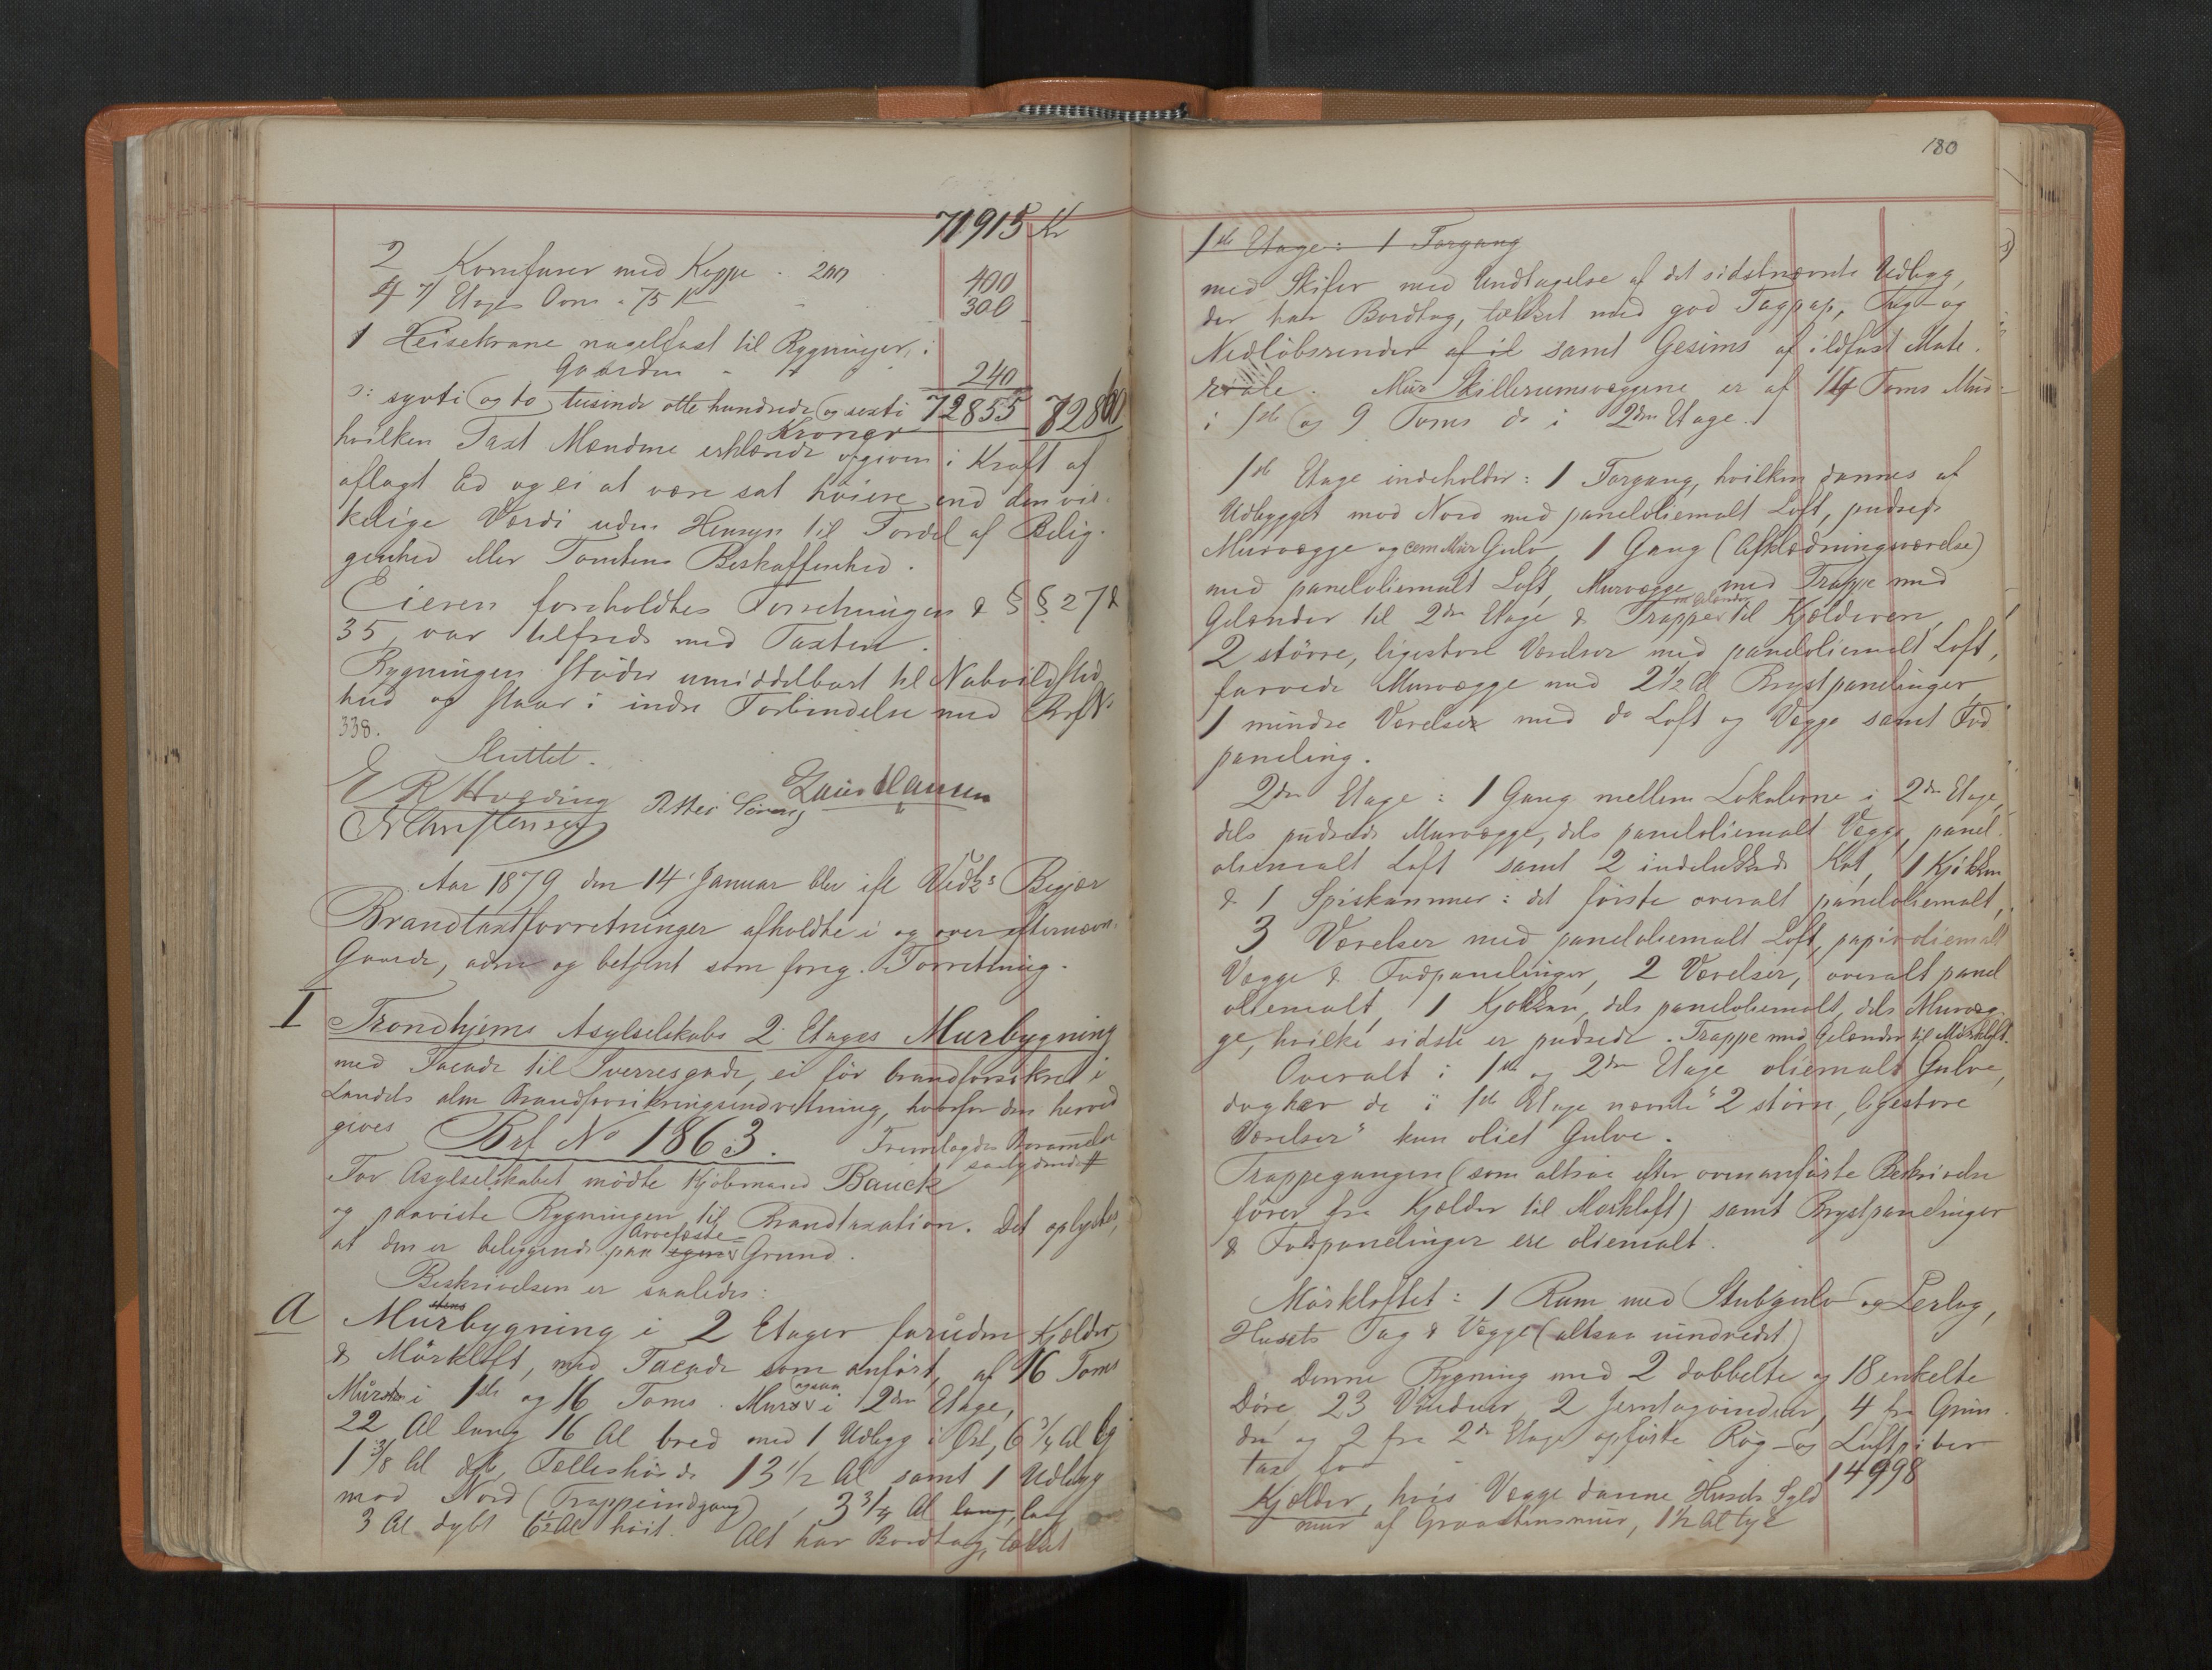 71915 Kr
2 Komfurer med Kappe . 200 400
4 7/ Etages Ovne - 75 Kr 300
1 Heisekrane nagelfast til Bygningen, i
Gaarden " " 240
ɔ: sytti og to tusinde otte hundrede og sexti 72855 72860
Kroner
hvilken Taxt Mændene erklærede afgiven i Kraft af
aflagt Ed og ei at være sat høiere end den vir-
kelige Værdi uden Hensyn til Fordel af Belig-
genhed eller Tomtens Beskaffenhed.
Eieren foreholdtes Forretningen & §§ 27 &
35, var tilfreds med Taxten.
Bygningen støder umiddelbart til Naboildsted
hed og staar i indre Forbindelse med Brf No
338.
Sluttet.
E R Hveding Lauis Hansen
Chr Christensen Petter
Aar 1879 den 14 Januar blev ifl Vedk:s Begjær
Brandtaxtforretninger afholdte i og over efternævn.
Gaarde, adm og betjent som foreg. Forretning.
I Trondhjems Asylselskabs 2 Etages Murbygning
med Facade til Sverresgade, ei før brandforsikret i
Landets alm Brandforsikringsindretning, hvorfor den herved
gives Brf No 1863. Fremlagdes
For Asylselskabet mødte Kjøbmand Bauck
og paaviste Bygningen til Brandtaxation. Det oplystes,
Arvefæste=
at den er beliggende paa egen Grund.
Beskrivelsen er saaledes:
a Murbygning i 2 Etager foruden Kjælder
& Mørkloft, med Facade som anført, af 16 Toms
Mur i 1ste og 16 Toms Mur ogsaa i 2den Etage,
22 Al lang 16 Al bred med 1 Udbygg i Øst, 6 3/4 Al lg
1 3/8 Al db, Felleshøide 13 1/2 Al samt 1 Udbygg
mod Nord (Trappeindgang), 3 3/4 Al lang, lang
3 Al dybt 6 1/2 Al høit. Alt har Bordtag, tækket
180
1ste Etage: 1 Forgang
med Skifer med Undtagelse af det sidstnævnte Udbygg,
der har Bordtag, tækket med god Tagpap, Tag- og
Nedløbsrender af il samt Gesims af ildfast Mate-
riale. Mur Skillerumsvæggene er af 14 Toms Mur
i 1ste og 9 Toms do i 2den Etage.
1ste Etage indeholder: 1 Forgang, hvilken dannes af
Udbygget mod Nord med paneloliemalt Loft, pudsede
Murvægge og cem Mur Gulv, 1 Gang (Afklædningsværelse)
med paneloliemalt Loft, Murvægge med Trappe med
Gelænder til 2den Etage & Trappe m Gelænder til Kjælderen,
2 større, ligestore Værelser med paneloliemalt Loft,
farvede Murvægge med 2 1/2 Al Brystpanelinger,
1 mindre Værelse med do Loft og Vægge samt Fod
paneling.
2den Etage: 1 Gang mellem Lokalerne i 2den Etage,
dels pudsede Murvægge, dels paneloliemalt Vægge, panel-
oliemalt Loft samt 2 indelukkede Kot, 1 Kjøkken
& 1 Spiskammer: det første overalt paneloliemalt,
3 Værelser med paneloliemalt Loft, papiroliemalt
Vægge & Fodpanelinger, 2 Værelser, overalt panel
oliemalt, 1 Kjøkken, dels paneloliemalt, dels Murvæg-
ge, hvilke sidste er pudsede. Trappe med Gelænder til Mørkloft.
Overalt i 1ste og 2den Etage oliemalt Gulve,
dog har de i 1ste Etage nævnte "2 større, ligestore
Værelser" kun oliet Gulve.
Trappegangen (som altsaa efter ovenanførte Beskrivelse
fører fra Kjælder til Mørkloft) samt Brystpanelinger
& Fodpanelinger ere oliemalt.
Mørkloftet: 1 Rum med Stubgulv og Lerlag,
Husets Tag & Vægge (altsaa uindredet)
Denne Bygning med 2 dobbelte og 18 enkelte
Døre, 23 Vinduer, 2 Jerntagvinduer, 4 fra Grun
den og 2 fra 2den Etage opførte Røg- og Luftpiber
tax for 14998
Kjælder, hvis Vægge danne Husets Syld
mur af Graastensmuur, 1 1/2 Al tyk